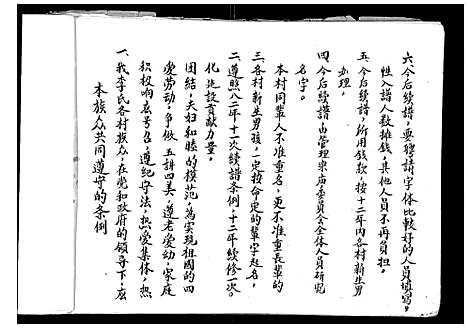 本族众共同遵守的条例
一、我李氏各村族众，在党和政府的领导下，应
积极响应号召，遵纪守法，热爱集体，热
爱劳动，争做五讲四美，遵老爱幼，家庭
团结，夫妇和睦的模范，为实现祖国的四
化建设贡献力量。
二、遵照八二年十一次续谱条例，十二年续修一次。
三、各村新生男孩，一定按命定的辈字起名，
本村同辈人不准重名，更不准重长辈的
名字。
四、今后续谱，由管理宗庙委员会全体人员研究
办理。
五、今后续谱，所用钱款，按十二年内各村新生男
性入谱人数摊钱，其他人员不再负担。
六、今后续谱，要聘请字体比较好的人员填写。